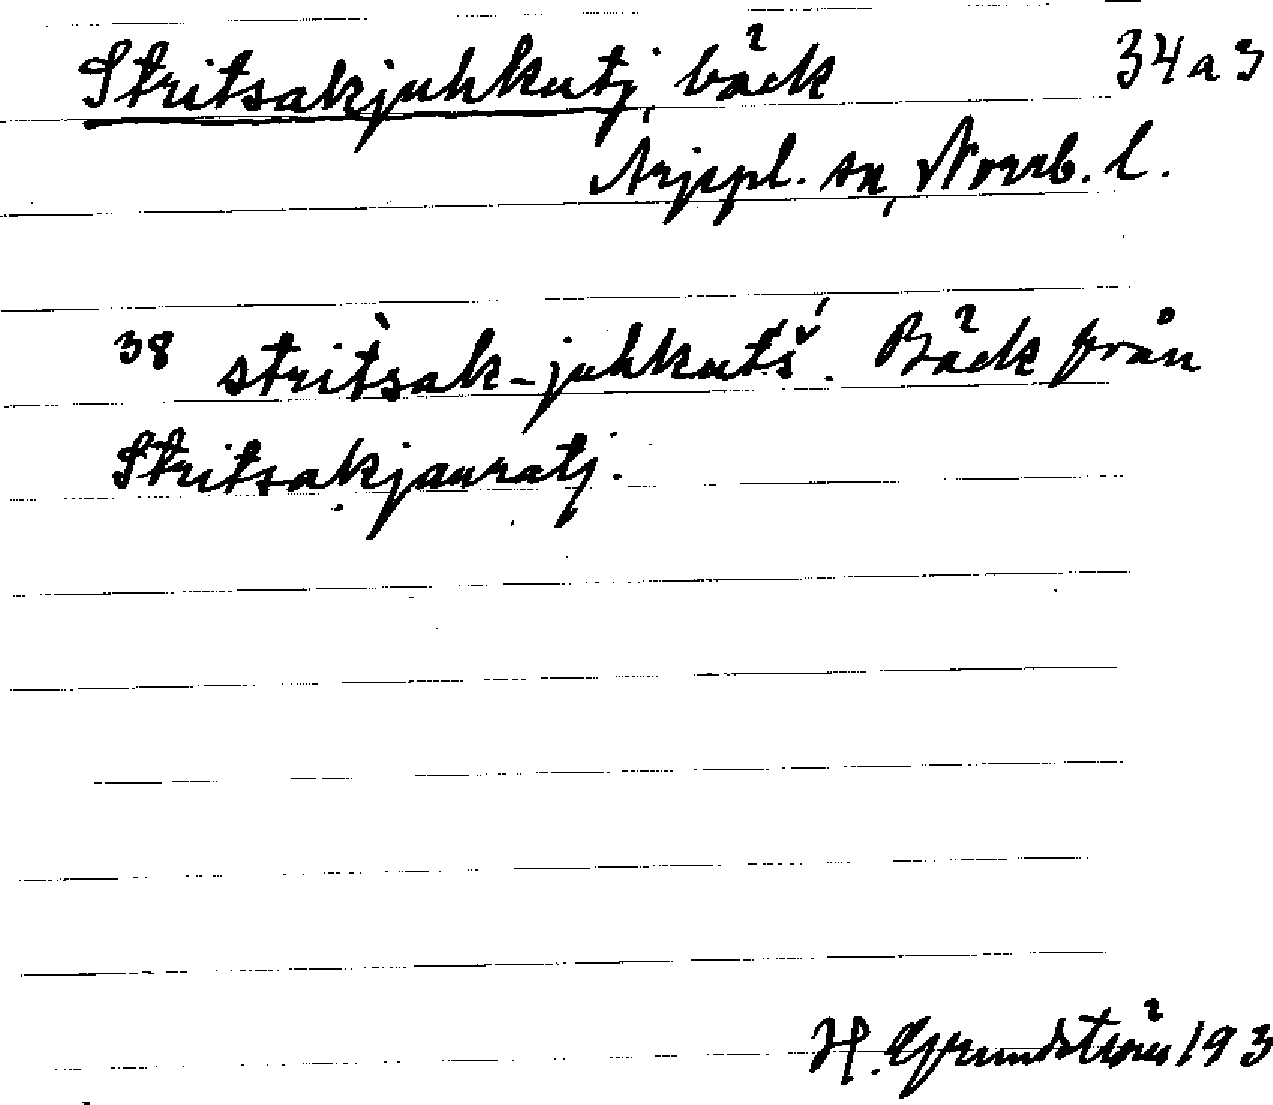 Stritsakjuhkutj, bäck 34 a 3
Arjepl. sn, Norrb. l.
38 stri̇̀tsak-juhkut́š́. Bäck från
Stritsakjauratj.
H. Grundström 193